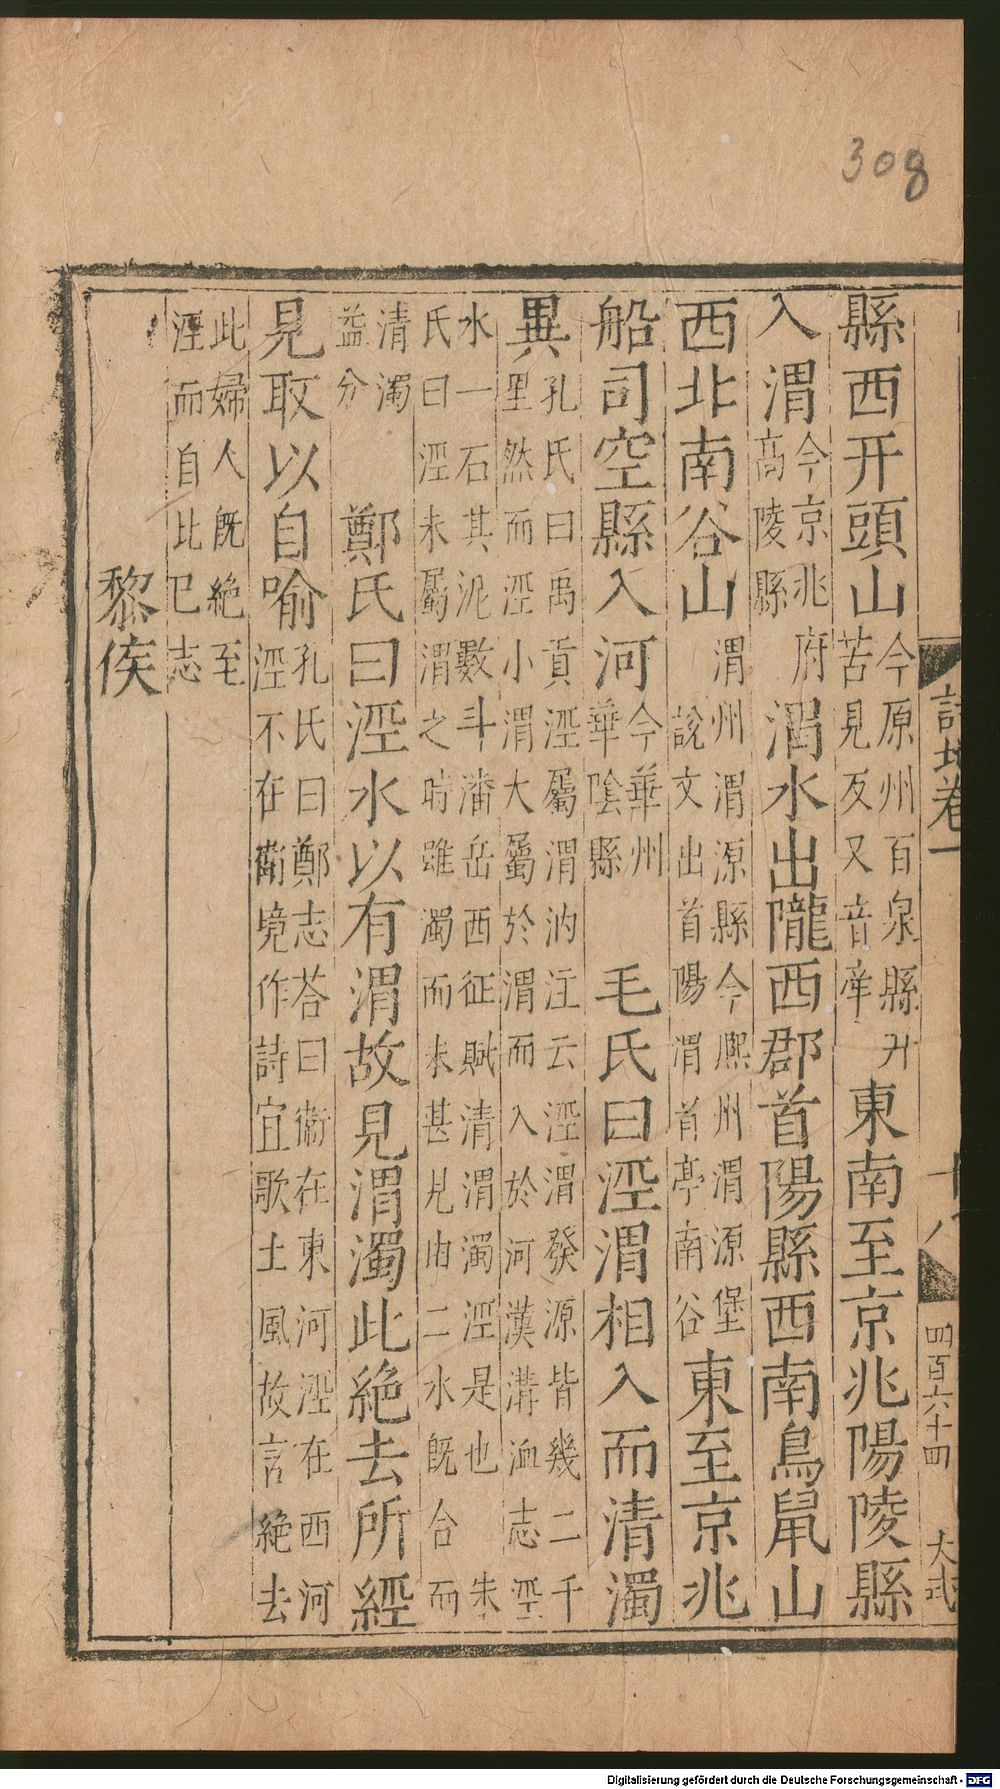 308
縣西幵頭山今原州百泉縣幵苦見反又音牽東南至京兆陽陵縣
入渭今京兆府高陵縣渭水出隴西郡首陽縣西南鳥鼠山
西北南谷山渭州渭源縣今熈州渭源堡說文出首陽渭首亭南谷東至京兆
船司空縣入河今華州華陰縣毛氏曰涇渭相入而清濁
異孔氏曰禹貢涇屬渭汭注云涇渭發源皆幾二千里然而涇小渭大屬於渭而入於河漢溝洫志涇
水一石其泥數斗潘岳西征賦清渭濁涇是也朱氏曰涇未屬渭之時雖濁而未甚見由二水既合而
清濁益分鄭氏曰涇水以有渭故見渭濁此絶去所經
見取以自喻孔氏曰鄭志荅曰衛在東河涇在西河涇不在衛境作詩宜歌土風故言絶去
此婦人既絶至涇而自比已志
黎侯
詩地卷一
十八
四百六十四
大
Digitalisierung gefördert durch die Deutsche Forschungsgemeinschaft - DFG